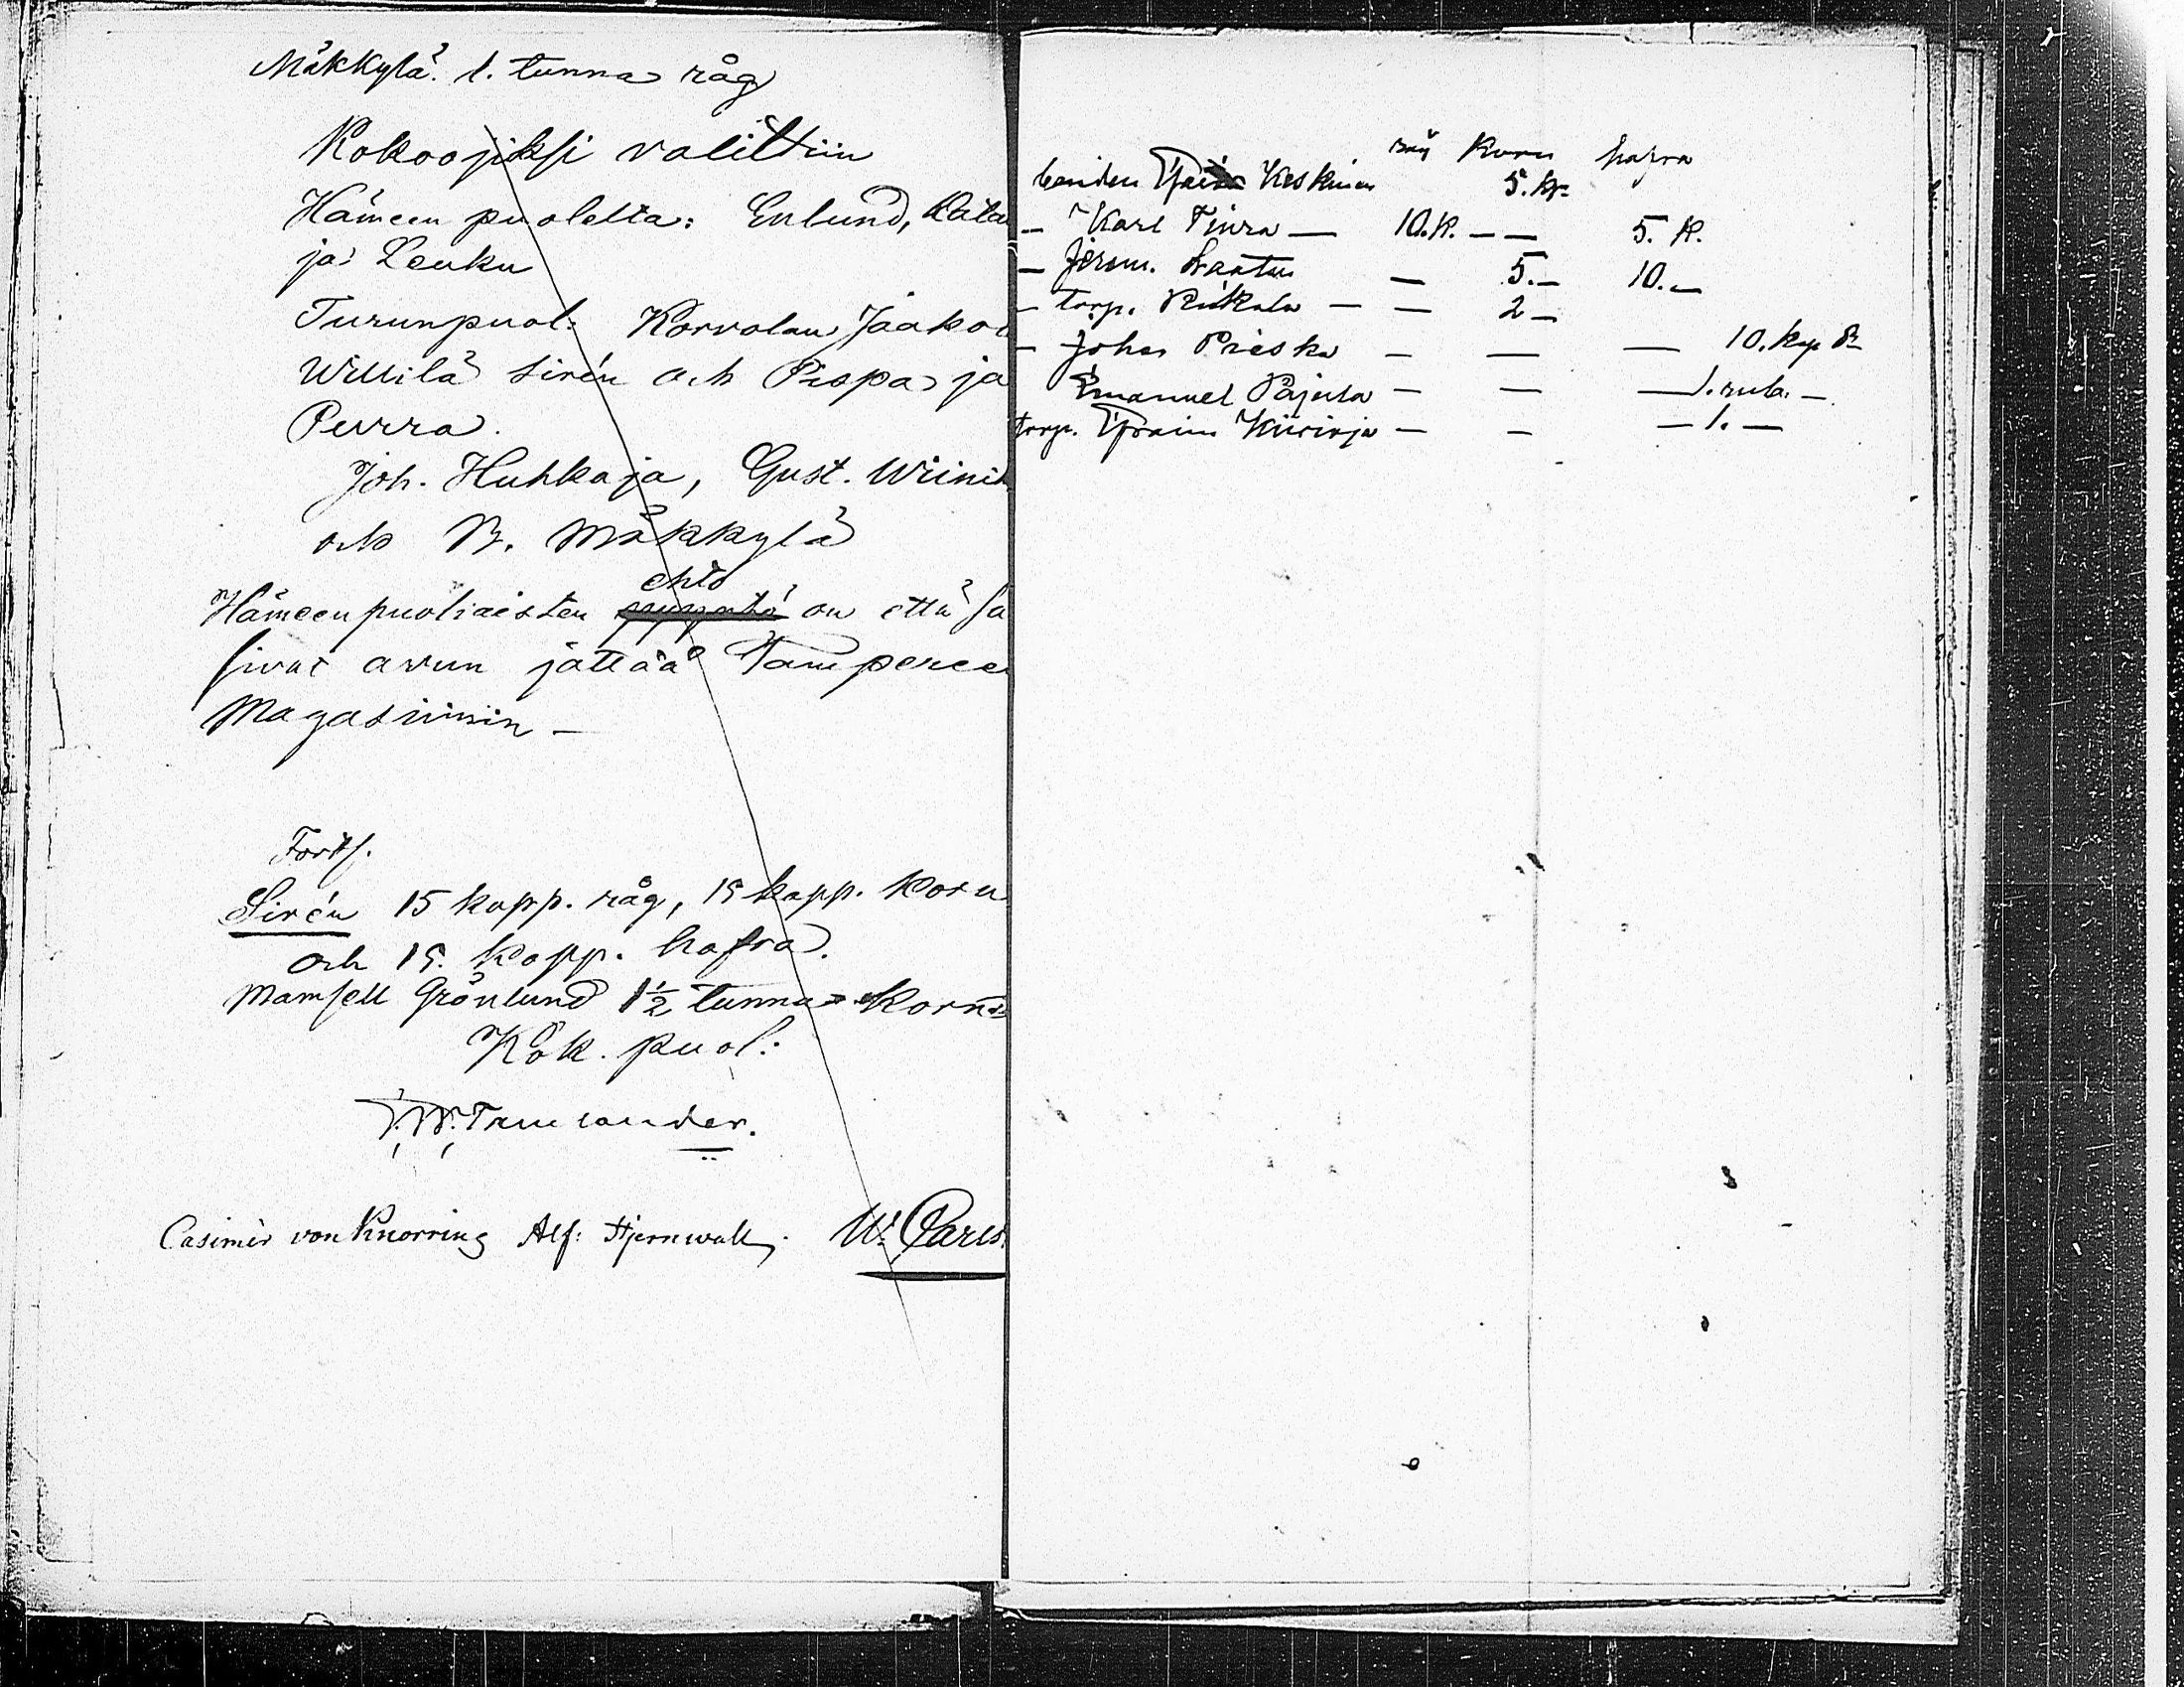 Mäkkylä. 1. tunna råg
Kokoojiksi valittiin
Hämeen puolelta: Enlund, Kata
ja Leuku
Turunpuol: Korvolan Jaako
Willilä Sirén och Pispa ja
Purra.
Joh. Huhkaja, Gust. Wiinik
och N. Mäkkylä
ehto
Hämeenpuoliaisten on että sa
sivat avun jättää Tamperee
Magasiiniin –
Forts.
Sirén 15 kapp. råg, 15 kapp. Korn
och 15. kapp. hafra.
Mamsell Grönlund 1½ tunna Korn
Kok. puol:
Casimir von Knorring Alf: Stjernvall. W. Carls
råg Korn hafra
bonden Keskinen 5. kp
– Karl Tiura – 10. K. – – 5. K.
– Jerem. – 5. – 10. –
– torp. Riikala – – 2 –
– Johan Prieska – – – 10. kop S
Emanuel Pajula – – – 1. rub. –
torp. Efraim – – – 1. –